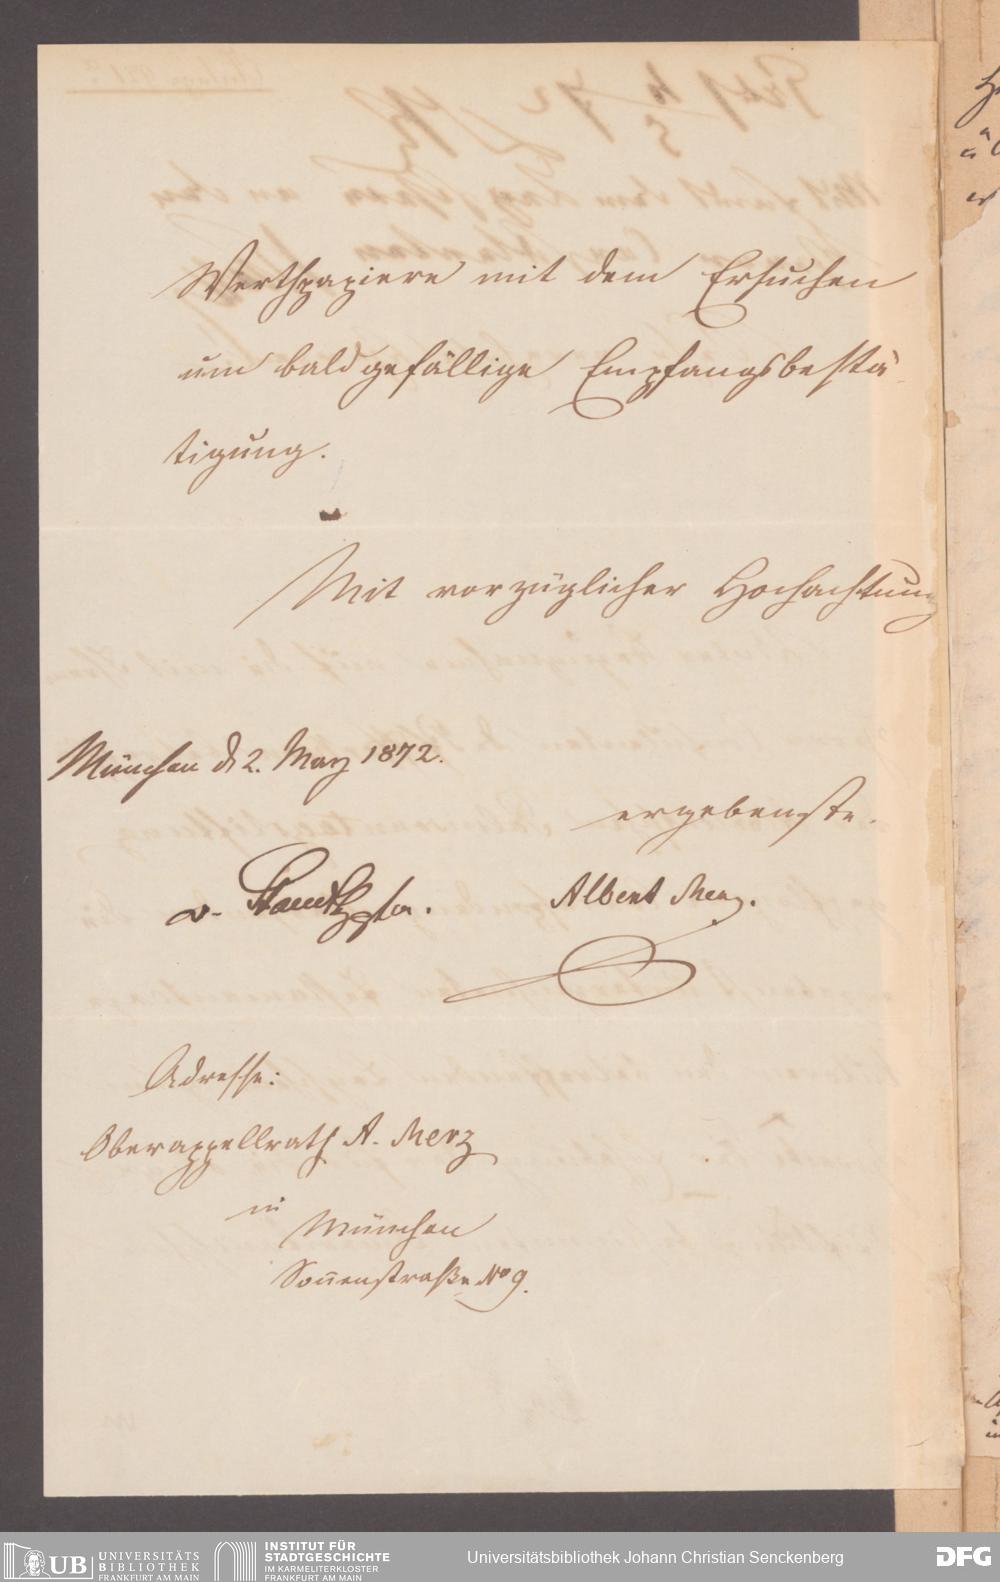 Werthpapiere mit dem Ersuchen
um baldgefällige Empfangsbestä-
tigung.
Mit vorzüglicher Hochachtung
München d. 2. May 1872.
ergebenste.
v.
Albert Merz.
Adresse:
Oberappellrath A. Merz
in
München
Sonnenstraße No 9.
UB UNIVERSITÄTS
BIBLIOTHEK
FRANKFURT AM MAIN
INSTITUT FÜR
STADTGESCHICHTE
IM KARMELITERKLOSTER
FRANKFURT AM MAIN
Universitätsbibliothek Johann Christian Senckenberg
DFG